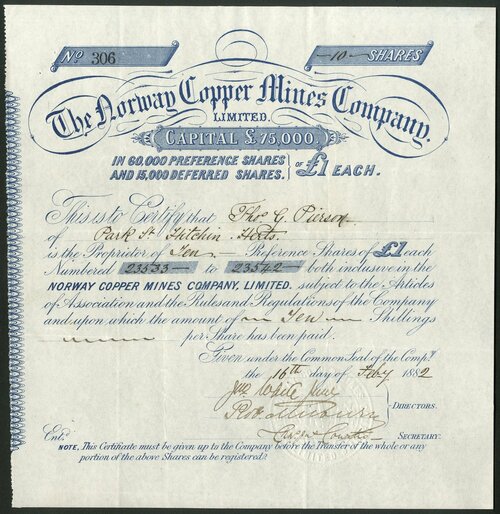 No. 306
—10— SHARES
The Norway Copper Mines Company.
LIMITED.
CAPITAL £75,000
IN 60,000 PREFERENCE SHARES
AND 15,000 DEFERRED SHARES.
OF £1 EACH.
This is to Certify that Thos G. Pierson
of Park St Hitchin Herts.
is the Proprietor of Ten Preference Shares of £1 each
Numbered 23533 to 23542 both inclusive in the
NORWAY COPPER MINES COMPANY, LIMITED. subject to the Articles
of Association and the Rules and Regulations of the Company
and upon which the amount of Ten Shillings
per Share has been paid.
Given under the Common Seal of the Compy.
the 16th day of Feby 1882
DIRECTORS.
SECRETARY.
Entd.
NOTE, This Certificate must be given up to the Company before the Transfer of the whole or any
portion of the above Shares can be registered.